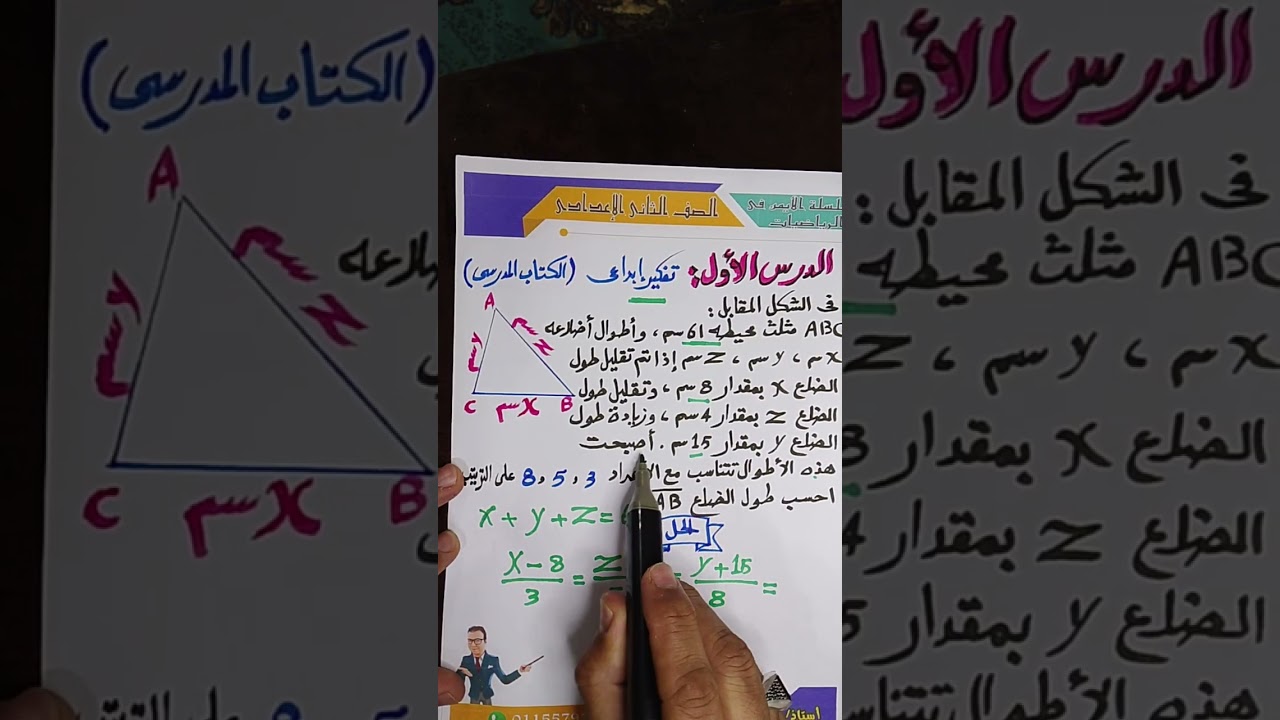 سلسلة الأيمن فى
الرياضيات
الصف الثانى الإعدادى
الدرس الأول: تفكير إبداعى (الكتاب المدرسى)
فى الشكل المقابل:
ABC مثلث محيطه 61 سم، وأطوال أضلاعه
x سم، y سم، z سم إذا تم تقليل طول
الضلع x بمقدار 8 سم، وتقليل طول
الضلع z بمقدار 4 سم، وزيادة طول
الضلع y بمقدار 15 سم. أصبحت
هذه الأطوال تتناسب مع الأعداد 3، 5، 8 على الترتيب
احسب طول الضلع AB
A
y سم
z سم
C
x سم
B
x + y + z =
الحل
x - 8 / 3 = z = y + 15 / 8 =
أستاذ/
(الكتاب المدرسى)
A
y سم
z سم
C
x سم
B
الدرس الأول
فى الشكل المقابل:
ABC مثلث محيطه
x سم، y سم، z
الضلع x بمقدار
الضلع z بمقدار
الضلع y بمقدار
هذه الأطوال تتناسب